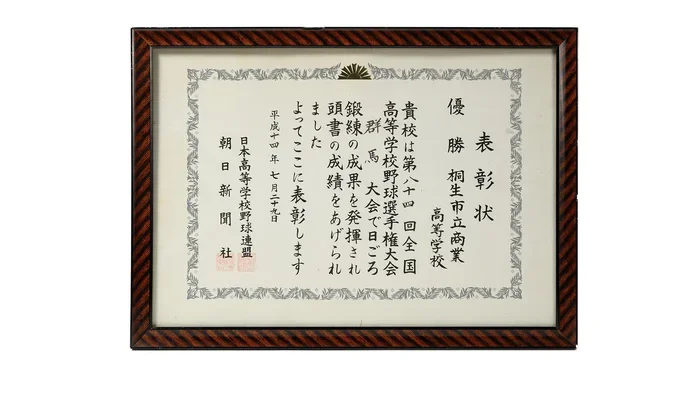 表彰状
優勝 桐生市立商業
高等学校
貴校は第八十四回全国
高等学校野球選手権大会
群馬大会で日ごろ
鍛練の成果を発揮され
頭書の成績をあげられ
ました
よってここに表彰します
平成十四年七月二十九日
日本高等学校野球連盟
朝日新聞社